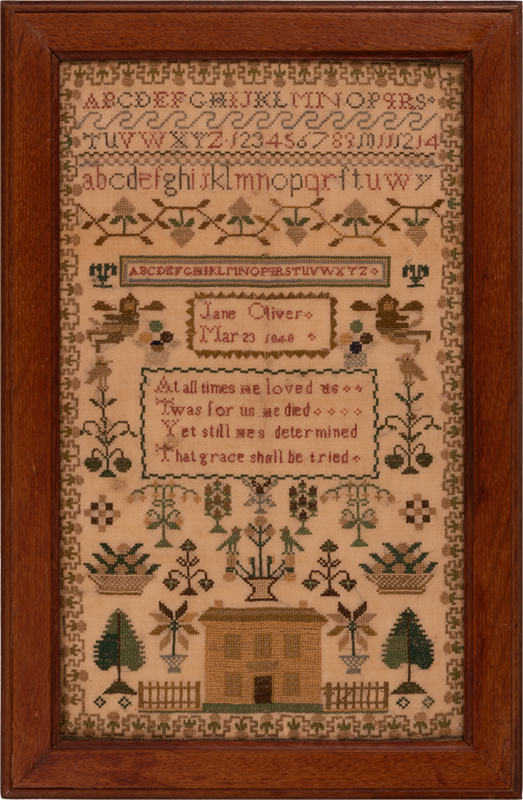 ABCDEFGHIJKLMNOPQRS
TUVWXYZ123456789101112 14
abcdefghijklmnopqrſtuwy
ABCDEFGHIKLMNOPQRSTUVWXYZ
Jane Oliver
Mar 23 1848
At all times he loved us
Twas for us he died
Yet still hes determined
That grace shall be tried